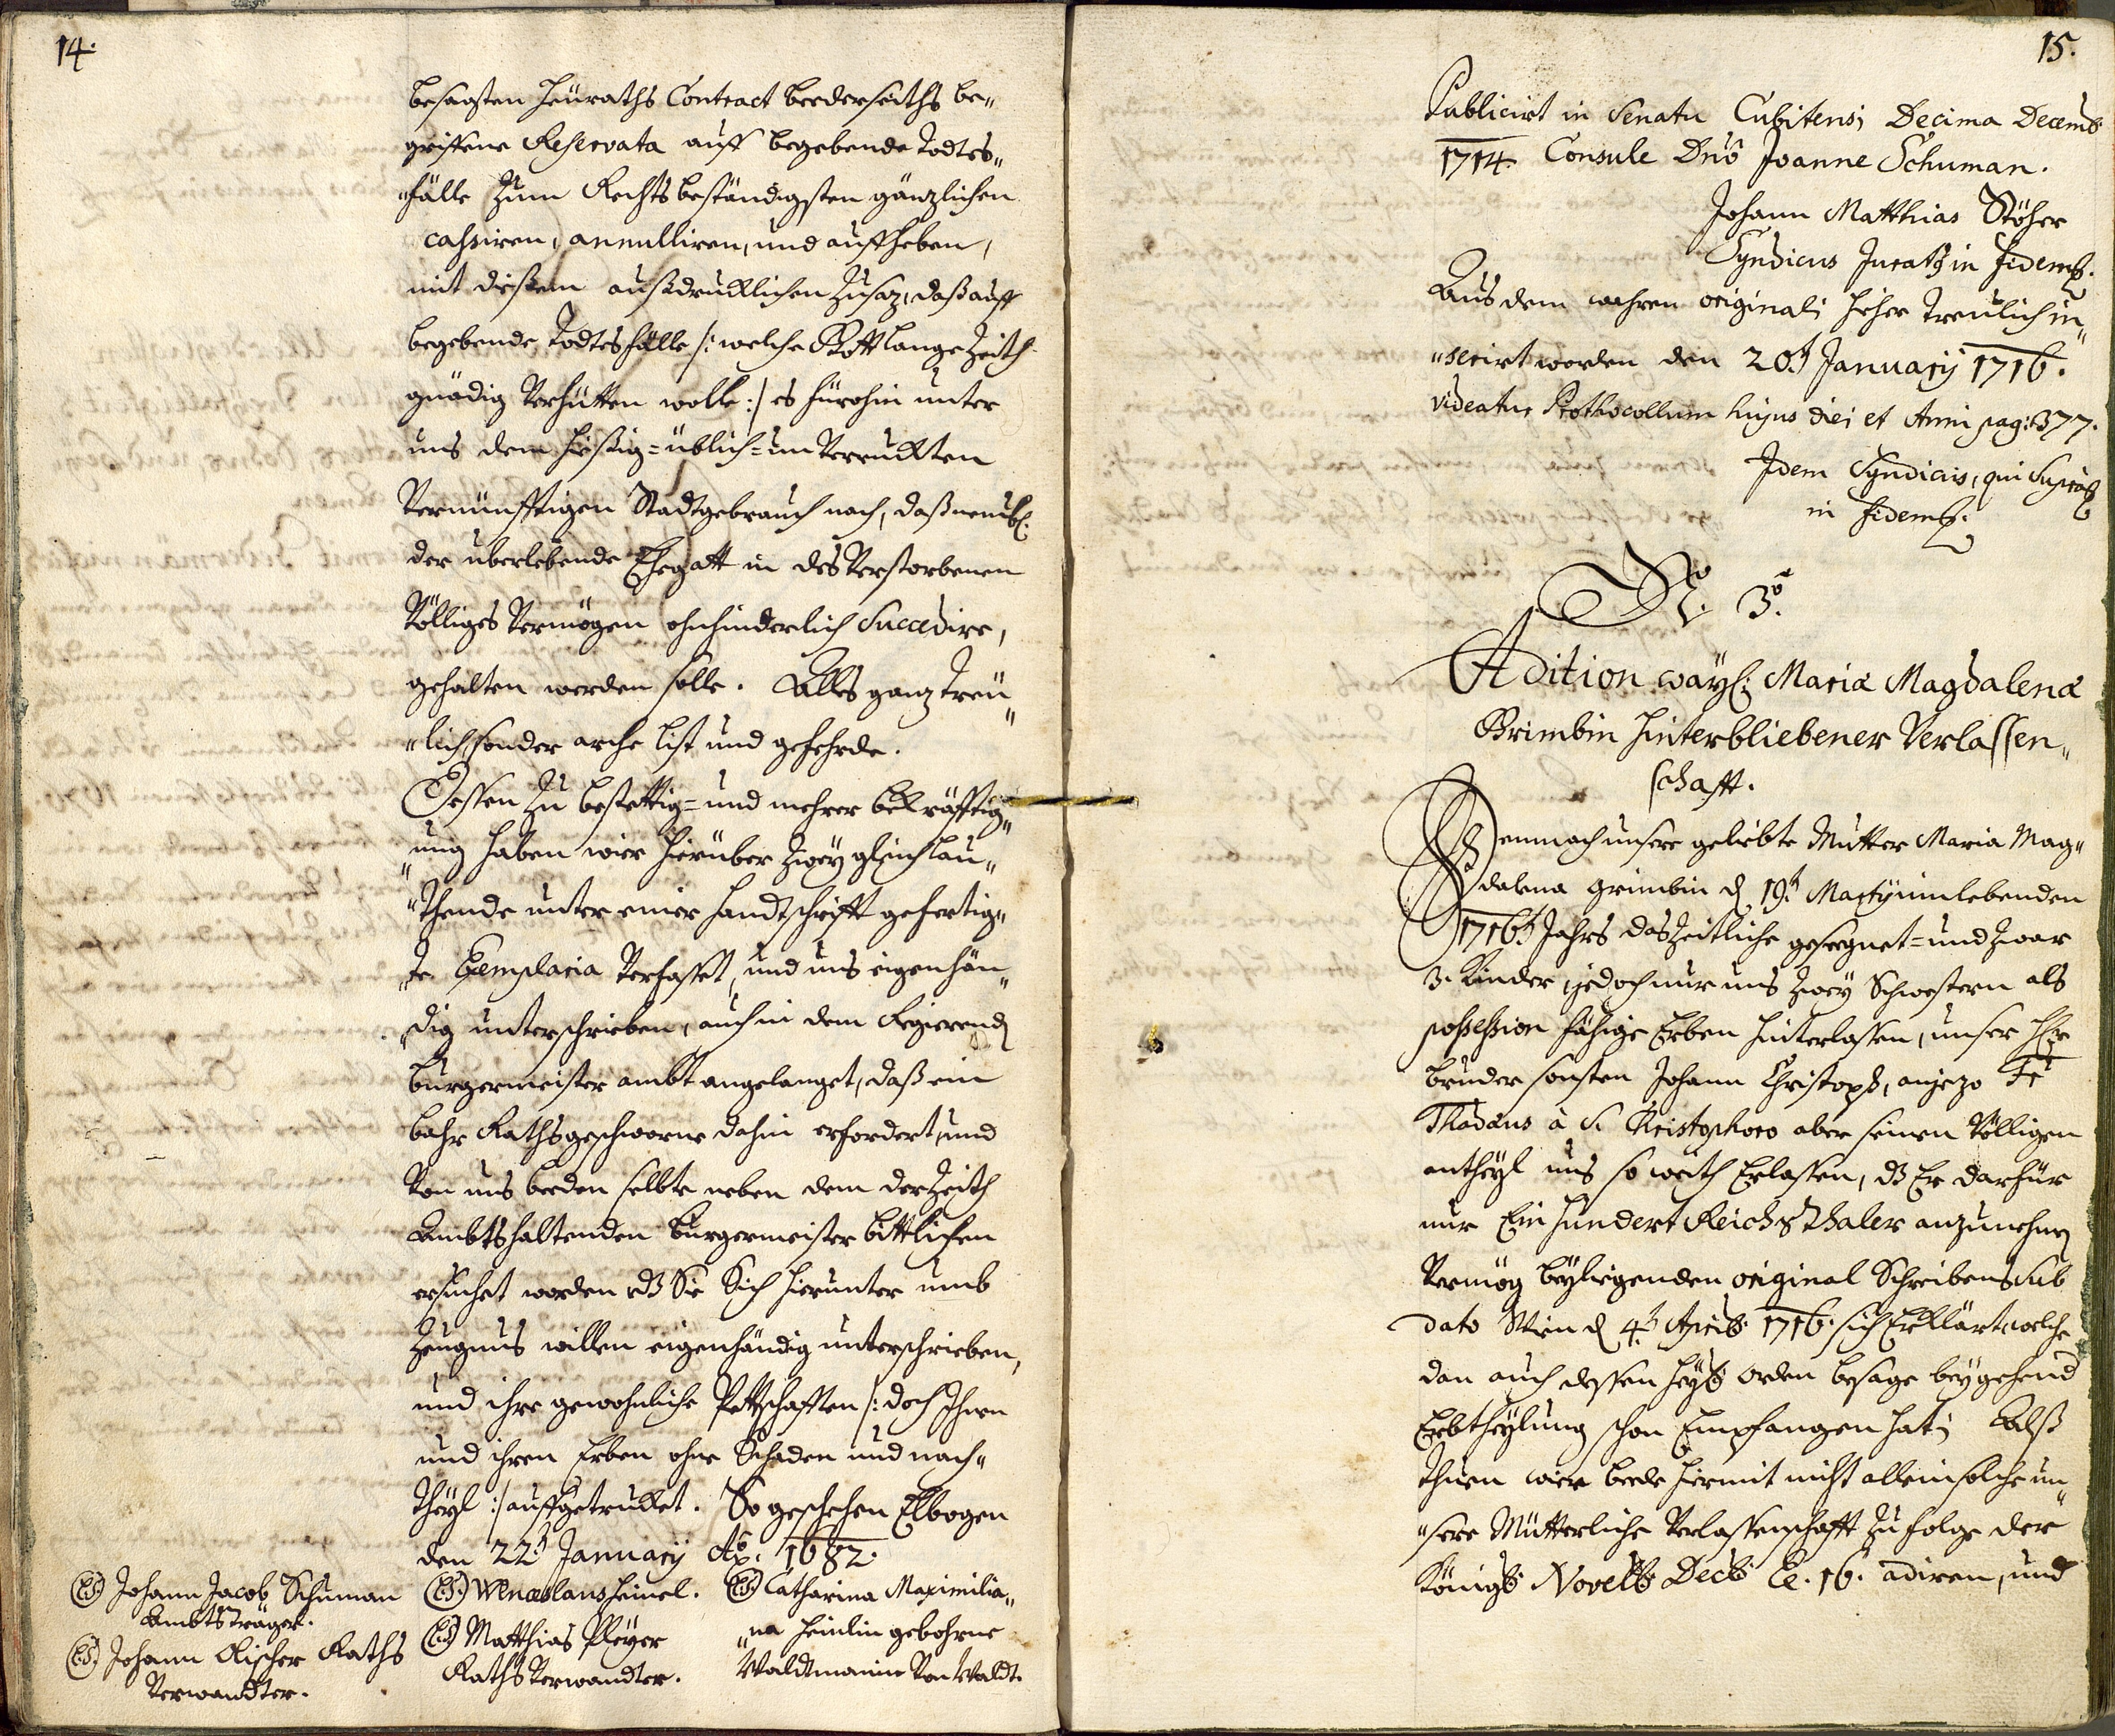 14.
besagten Heuraths Contract beederseiths be„
griffene Reservata auff begebende Todtes„
„fälle zum Rechtsbeständigsten gänzlichen
cassiren, annulliren, und auffheben,
mit dißem außdrucklichen Zusaz, daß auff
begebende Todtesfälle /: welche Gott lange Zeith
gnädig verhütten wolle :/ es fürohin unter
uns dem hießig= üblich= unverruckten
vernünfftigen Stadtgebrauch nach, daß neml:
der überlebende Ehegatt in des verstorbenen
völliges Vermögen ohnhinderlich succedire,
gehalten werden solle. Alles ganz treu„
„lich, sonder arche list und gefehrde.
Dessen zu bestettig= und mehrer bekräfftig„
„ung haben wier hierüber zwey gleichlau„
„thende unter einer Handtschrifft gefertig„
„te Exemplaria verfasset, und uns eigenhän„
„dig unterschrieben, auch in dem Regierend
Burgermeister ambt angelanget, daß ein
bahr Rathsgeschworne dahin erfordert, und
von uns beeden selbte neben dem derzeith
Ambtshaltenden Burgermeister bittlichen
ersuchet worden, dß Sie Sich hierunter umb
Zeugnus willen eigenhändig unterschrieben,
und ihre gewohnliche Pettschafften /: doch Ihnen
und ihren Erben ohne Schaden und nach„
theyl :/ auffgetrucket. So geschehen Elbogen
den 22t January Ao. 1682.
(LS.) Johann Jacob Schuman
Ambtsträger.
(LS.) Johann Rischer Raths
Verwandter.
(LS.) Wenceslaus Heinel.
(LS.) Matthias Pleyer
Raths Verwandter.
(LS.) Catharina Maximilia„
„na Heinlin gebohrne
Waldtmanin von Waldt.
15.
Publicirt in Senatu Cubitensi Decima Decemb:
1714. Consule Dno Joanne Schuman.
Johann Matthias Stöher
Syndicus Juratg in fidem.
Aus dem wahren originali hieher treulich in„
„serirt worden den 20t January 1716.
videatur Prothocollum hujus diei et Anni pag: 377.
Idem Syndicus, qui Supra
in fidem.
No. 3o.
Adition wayl: Mariæ Magdalenæ
Grimbin Hinterbliebener Verlassen„
schafft.
Demnach unsere geliebte Mutter Maria Mag„
dalena Grimbin d 19t Marty im lebenden
1716t Jahrs das Zeitliche geseegnet= und zwar
3. Kinder, jedoch nur uns zwey Schwestern als
possession fähige Erben hinterlassen, unser Hr
Bruder sonsten Johann Christoph, anjezo Fr
Thadæus à S. Christophoro aber seinen völligen
antheyl uns so weith Erlassen, dß Er darfür
nur Ein hundert Reichsthaler anzunehmen
vermög beyliegenden original Schreibens sub
dato Wien d 4t Aprill: 1716. sich Erklärt, welche
dan auch dessen Heyl: Orden besage beygehend
Erbtheylung schon Empfangen hat; Alß
thuen wier beede hiermit nicht allein solche un„
„sere Mütterliche Verlassenschafft zu folge der
Königl: Novell: Decl: Ee. 16. adiren, und